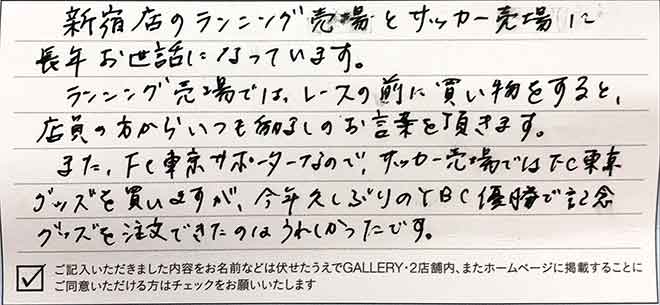 新宿店のランニング売場とサッカー売場に
長年お世話になっています。
ランニング売場では、レースの前に買い物をすると、
店員の方からいつも励ましのお言葉を頂きます。
また、FC東京サポーターなので、サッカー売場ではFC東京
グッズを買いますが、今年久しぶりのYBC優勝で記念
グッズを注文できたのはうれしかったです。
ご記入いただきました内容をお名前などは伏せたうえでGALLERY・2店舗内、またホームページに掲載することに
ご同意いただける方はチェックをお願いいたします